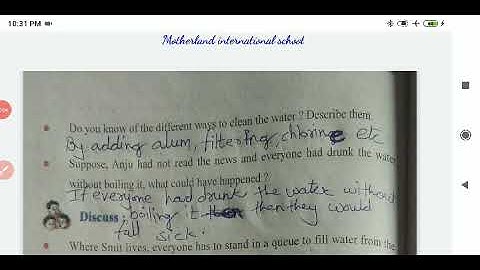 10:31 PM
Motherland international school
Do you know of the different ways to clean the water ? Describe them
By adding alum, filtering, chlorine etc
Suppose, Anju had not read the news and everyone had drunk the water
without boiling it, what could have happened ?
If everyone had drunk the water without
Discuss : boiling it then they would
fall sick.
Where Smit lives, everyone has to stand in a queue to fill water from the